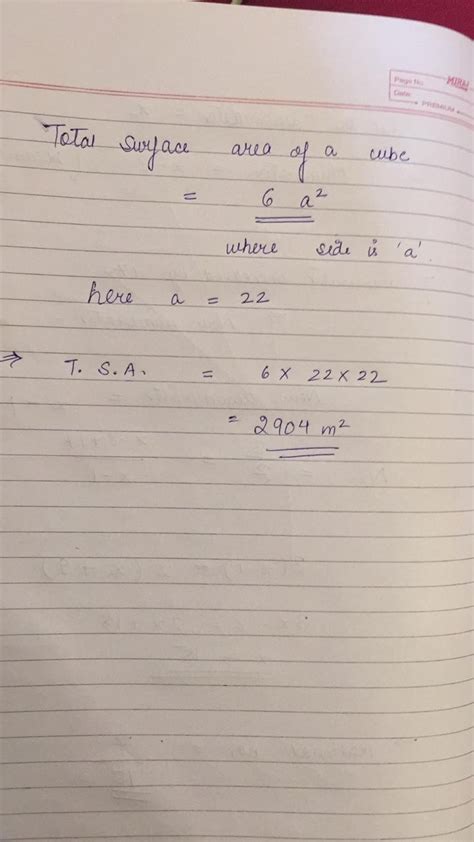 Page No.
Date:
PREMIUM
Total surface area of a cube
= 6 a²
where side is 'a'.
here a = 22
⇒ T. S. A. = 6 × 22 × 22
= 2904 m²